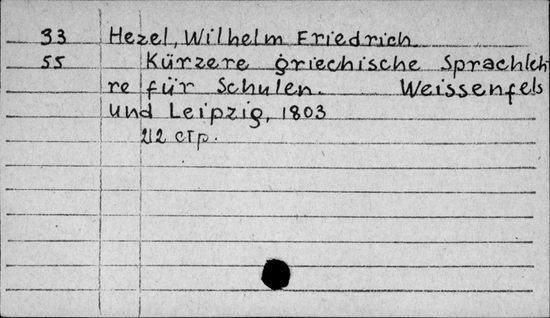 33 Hezel, Wilhelm Friedrich.
55 Kürzere griechische Sprachleh-
re für Schulen. Weissenfels
und Leipzig, 1803
212 стр.